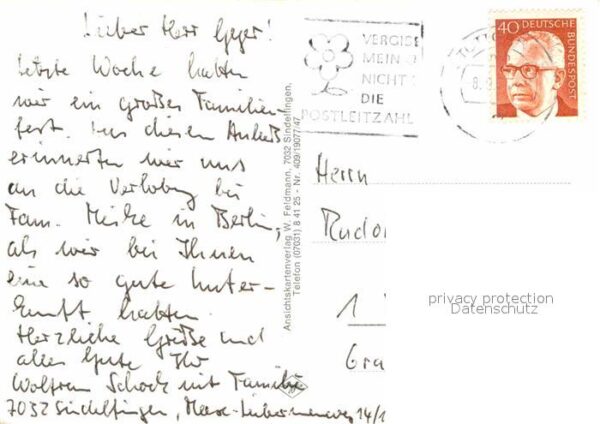 Lieber Herr Geyer!
letzte Woche hatten
wir ein großes Familien-
fest. Aus diesem Anlaß
erinnerten wir uns
an die Verlobung bei
Fam. Miske in Berlin,
als wir bei Ihnen
eine so gute Unter-
kunft hatten.
Herzliche Grüße und
alles Gute Ihr
Wolfram Schock mit Familie
7032 Sindelfingen, Max-Liebermannweg 14/1
Ansichtskartenverlag W. Feldmann, 7032 Sindelfingen,
Telefon (07031) 8 41 25 - Nr. 409/19077/47
VERGISS
MEIN
NICHT
DIE
POSTLEITZAHL
8.9
40 DEUTSCHE
BUNDESPOST
Herrn
Rudol
1
Gra
privacy protection
Datenschutz